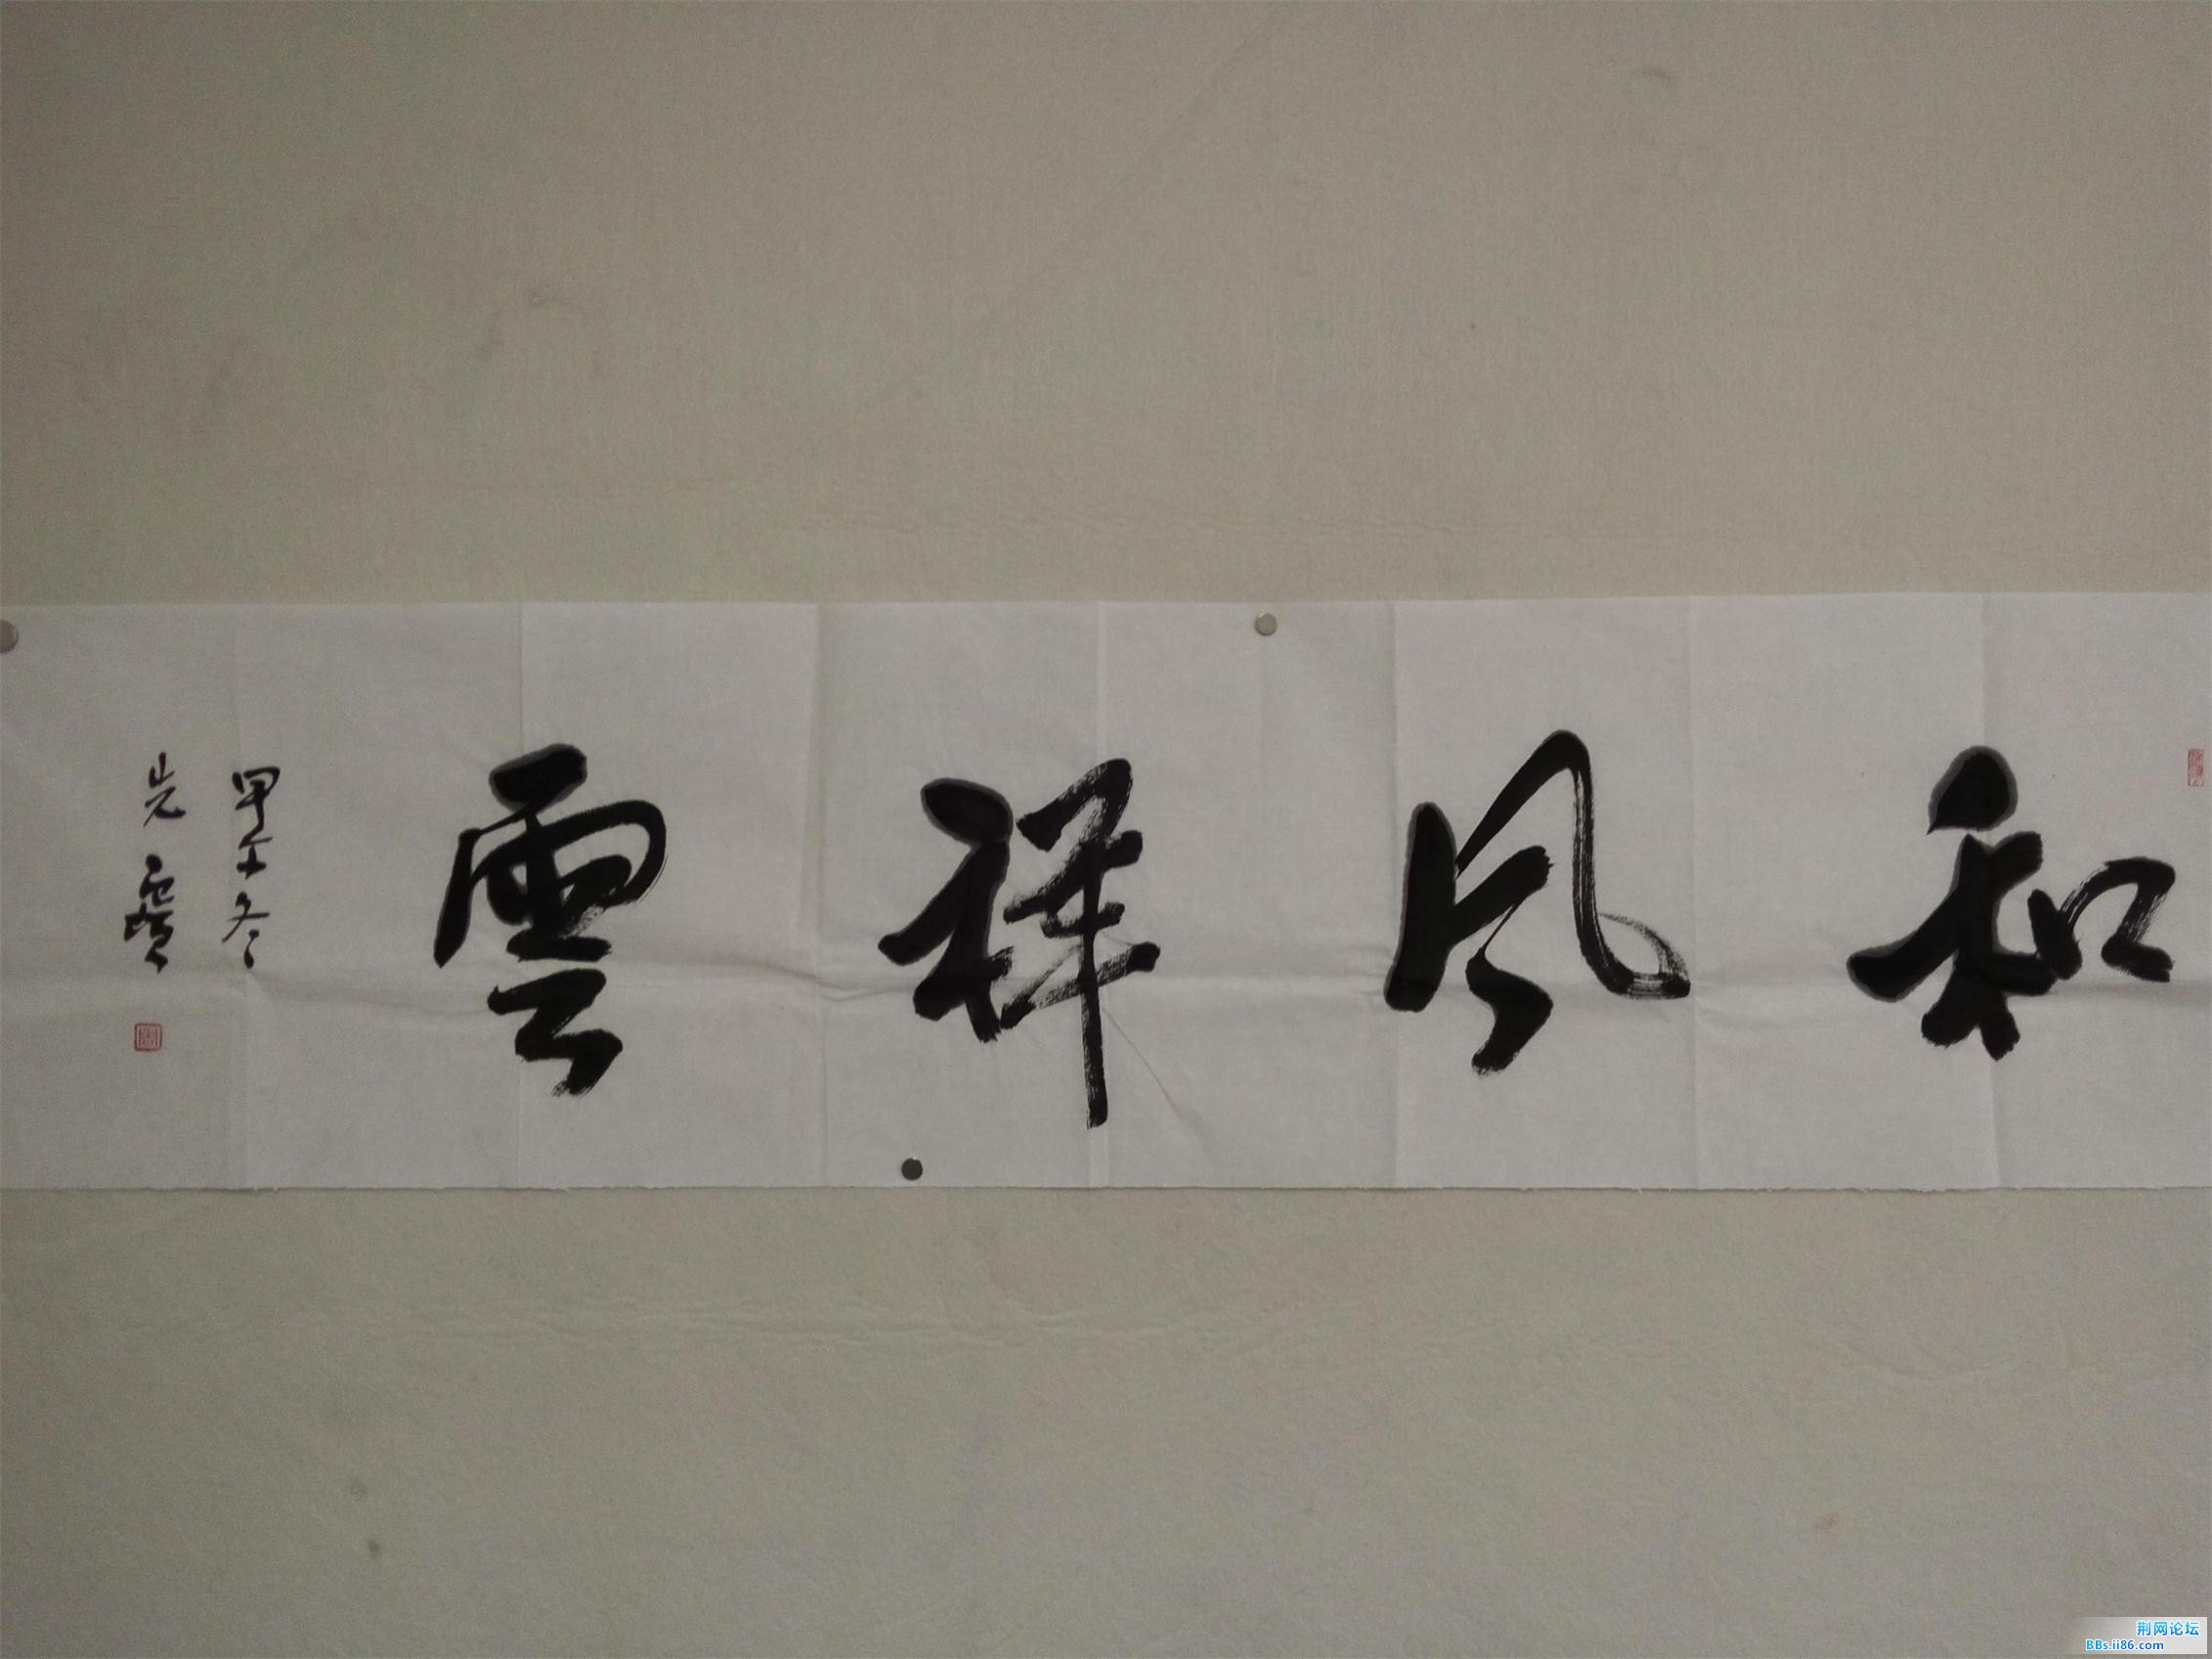 和风祥雲
甲午冬
先
荆网论坛
BBs.ii86.com